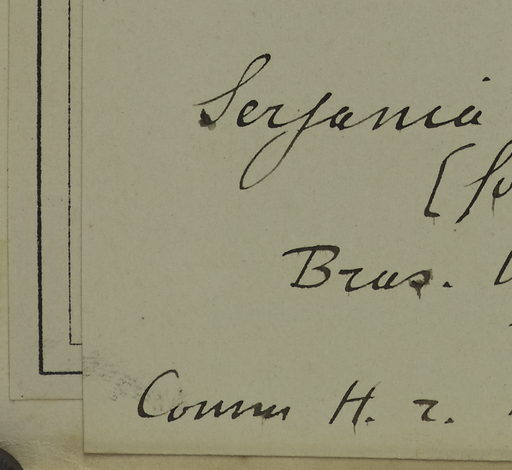 Serjania
Bras.
Comm H. z.